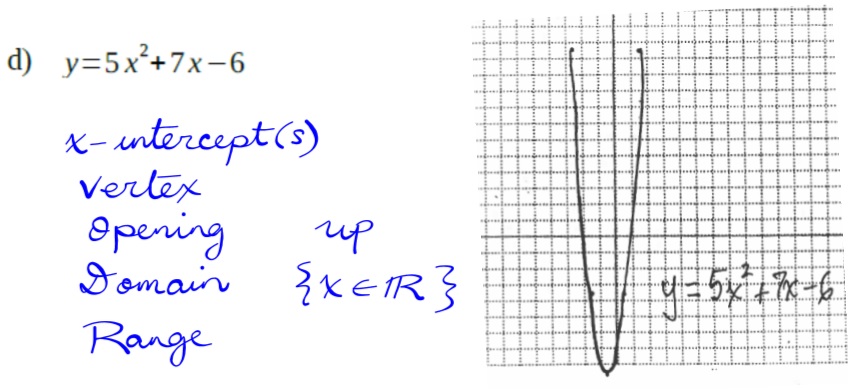 d) y=5x²+7x−6
x-intercept(s)
Vertex
Opening up
Domain {x∈ℝ}
Range
y=5x²+7x-6